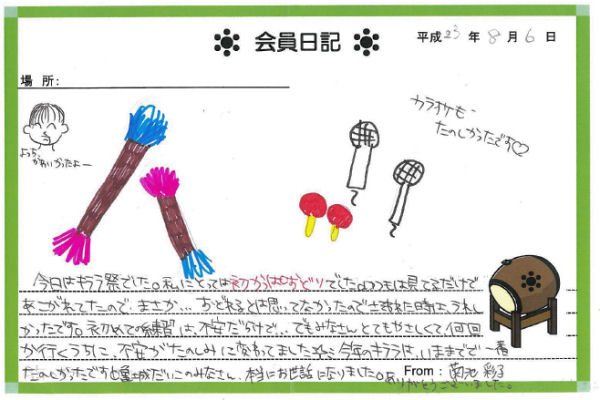 会員日記
平成23年8月6日
場所:
カラオケも
たのしかったです♡
今日はキララ祭でした。私にとっては初からぱおどりでした。いつもは見てるだけで
あこがれてたので、まさか… おどれるとは思ってなかったので さそわれた時は、うれし
かったです。初めての練習は、不安だらけで… でもみなさん とてもやさしくて 何回
か行くうちに、不安がたのしみに変わってました 今年のキララは、いままでで一番
たのしかったです 亀城だいこのみなさん、本当にお世話になりました。ありがとうございました。
From: 菊池 彩子